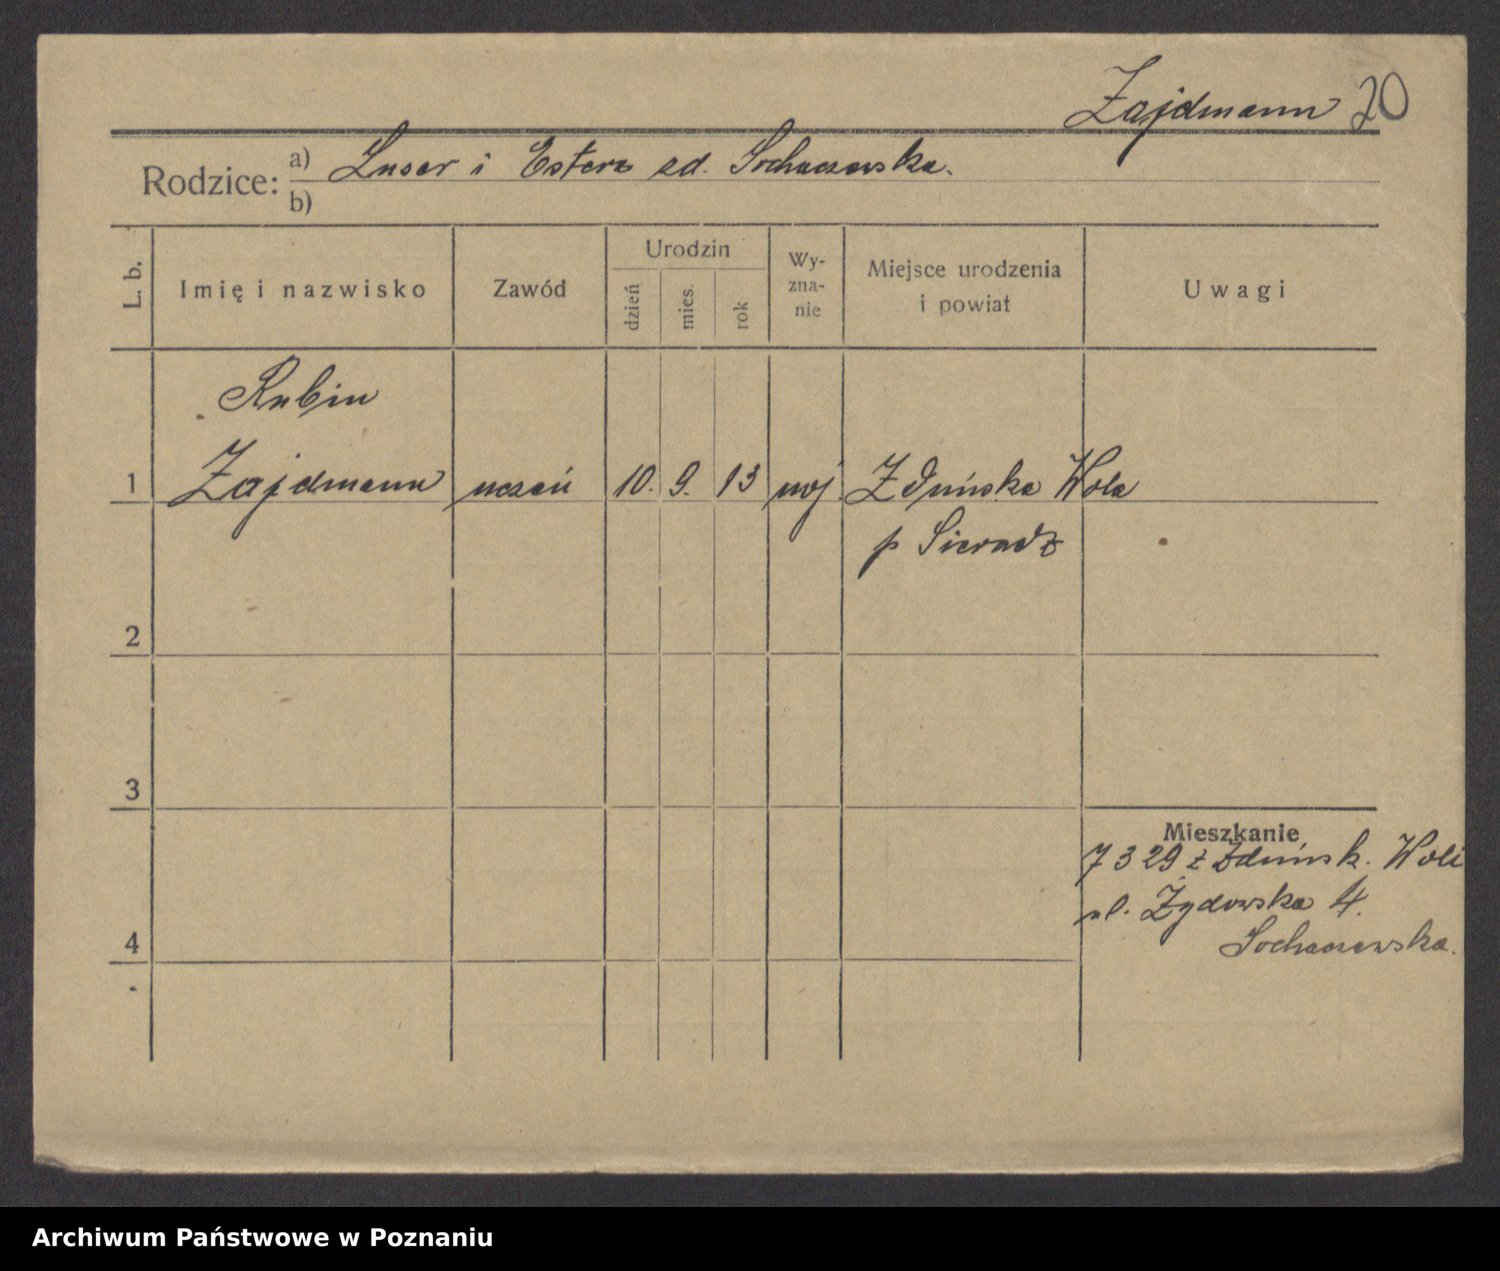 Zajdmann 20
Rodzice: a) Luser i Estera zd. Sochaczewska.
b)
L. b.
Imię i nazwisko
Zawód
Urodzin
dzień
mies.
rok
Wy-
zna-
nie
Miejsce urodzenia
i powiat
Uwagi
Rubin
1 Zajdmann uczeń 10. 9. 13 moj Zduńska Wola
p Sieradz
2
3
Mieszkanie
7 3 29 z Zduńsk. Woli
ul. Żydowska 4.
4 Sochaczewska.
Archiwum Państwowe w Poznaniu